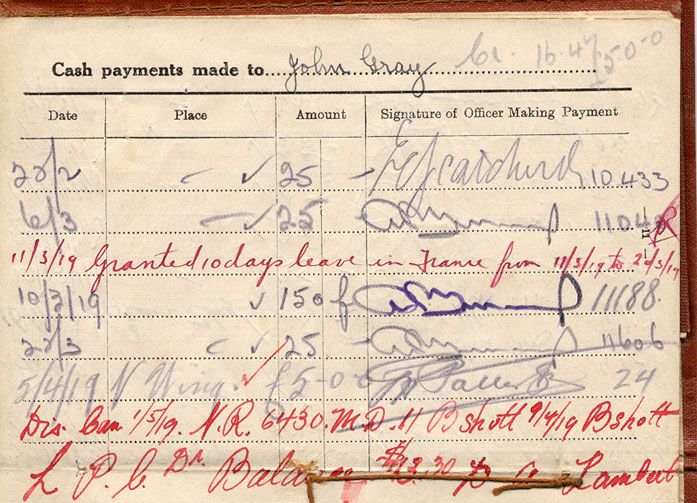 Cash payments made to John Gray Cr. 16.47 £5-0-0
Date Place Amount Signature of Officer Making Payment
22/2 25 10.433
6/3 25
11/3/19 Granted 10 days leave in France from 11/3/19 to 20/3/19
10/3/19 150 f 11188.
22/3 25 11606
5/4/19 N Wing £5-0-0 24
Dis. Can 1/5/19. N.R. 6430. M.D. 11 Bshott 9/4/19 Bshott
L P C Dr. Balance $12.30 Lambert